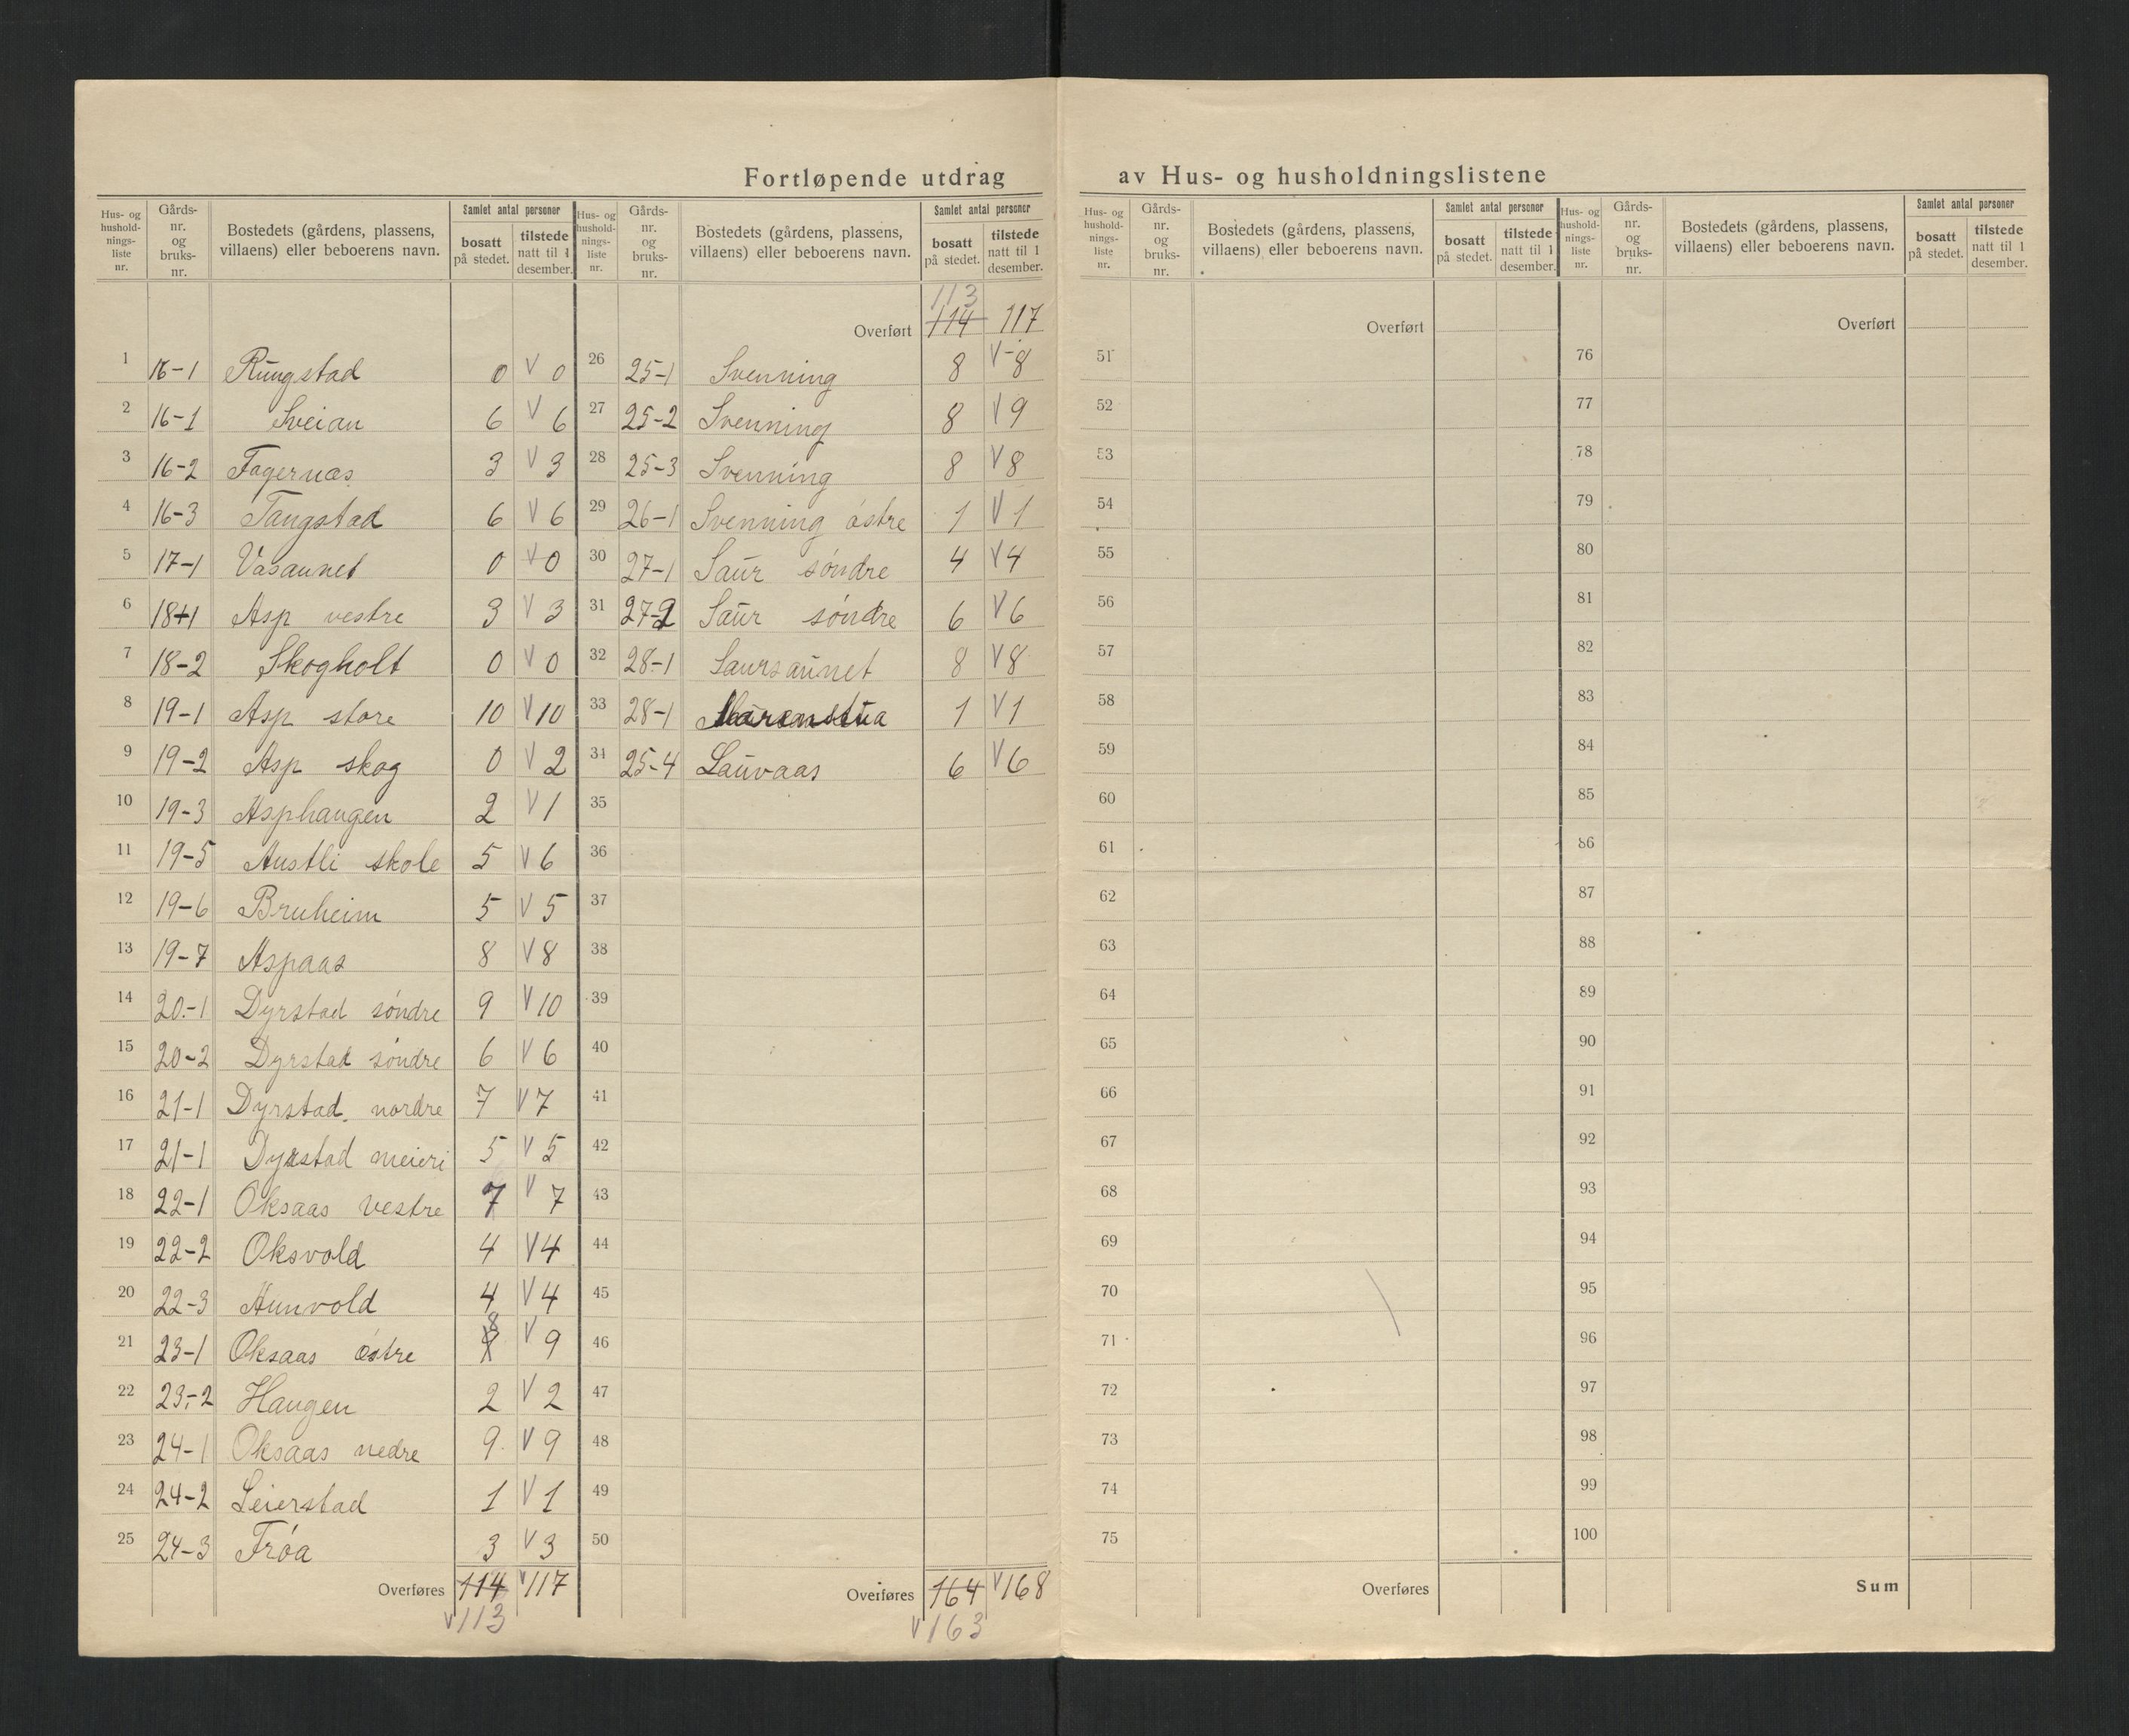 Fortløpende utdrag av Hus- og husholdningslistene
Hus- og hushold-nings-liste nr. Gårds-nr. og bruks-nr. Bostedets (gårdens, plassens, villaens) eller beboerens navn. Samlet antal personer bosatt på stedet. tilstede natt til 1 desember.
1 16-1 Rungstad 0 V 0
2 16-1 Sveian 6 V 6
3 16-2 Fagernæs 3 V 3
4 16-3 Tangstad 6 V 6
5 17-1 Vasaunet 0 V 0
6 18-1 Asp vestre 3 V 3
7 18-2 Skogholt 0 V 0
8 19-1 Asp store 10 V 10
9 19-2 Asp skog 0 V 2
10 19-3 Asphaugen 2 V 1
11 19-5 Austli skole 5 V 6
12 19-6 Bruheim 5 V 5
13 19-7 Aspaas 8 V 8
14 20-1 Dyrstad söndre 9 V 10
15 20-2 Dyrstad söndre 6 V 6
16 21-1 Dyrstad nordre 7 V 7
17 21-1 Dyrstad meieri 5 V 5
18 22-1 Oksaas vestre 7 V 7
19 22-2 Oksvold 4 V 4
20 22-3 Aunvold 4 V 4
21 23-1 Oksaas östre 8 V 9
22 23-2 Haugen 2 V 2
23 24-1 Oksaas nedre 9 V 9
24 24-2 Leierstad 1 V 1
25 24-3 Fröa 3 V 3
Overføres 114 V 117
V 113
Hus- og hushold-nings-liste nr. Gårds-nr. og bruks-nr. Bostedets (gårdens, plassens, villaens) eller beboerens navn. Samlet antal personer bosatt på stedet. tilstede natt til 1 desember.
113
Overført 114 117
26 25-1 Svenning 8 V 8
27 25-2 Svenning 8 V 9
28 25-3 Svenning 8 V 8
29 26-1 Svenning östre 1 V 1
30 27-1 Saur söndre 4 V 4
31 27-2 Saur söndre 6 V 6
32 28-1 Saursaunet 8 V 8
33 28-1 1 V 1
34 25-4 Lauvaas 6 V 6
35
36
37
38
39
40
41
42
43
44
45
46
47
48
49
50
Overføres 164 V 168
V 163
Hus- og hushold-nings-liste nr. Gårds-nr. og bruks-nr. Bostedets (gårdens, plassens, villaens) eller beboerens navn. Samlet antal personer bosatt på stedet. tilstede natt til 1 desember.
Overført
51
52
53
54
55
56
57
58
59
60
61
62
63
64
65
66
67
68
69
70
71
72
73
74
75
Overføres
Hus- og hushold-nings-liste nr. Gårds-nr. og bruks-nr. Bostedets (gårdens, plassens, villaens) eller beboerens navn. Samlet antal personer bosatt på stedet. tilstede natt til 1 desember.
Overført
76
77
78
79
80
81
82
83
84
85
86
87
88
89
90
91
92
93
94
95
96
97
98
99
100
Sum